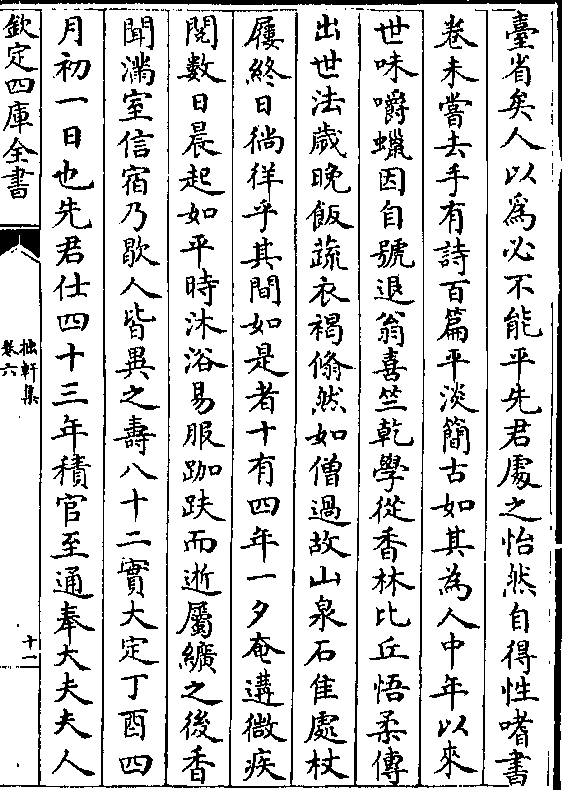 臺省矣人以爲必不能平先君處之怡然自得性嗜書
卷未嘗去手有詩百篇平淡簡古如其為人中年以來
世味嚼蠟因自號退翁喜竺乾學從香林比丘悟柔傳
出世法歲晚飯蔬衣褐翛然如僧過故山泉石佳處杖
屨終日徜徉乎其間如是者十有四年一夕奄遘微疾
閱數日晨起如平時沐浴易服跏趺而逝屬纊之後香
聞滿室信宿乃歇人皆異之壽八十二實大定丁酉四
月初一日也先君仕四十三年積官至通奉大夫夫人
欽定四庫全書
拙軒集
卷六
十一